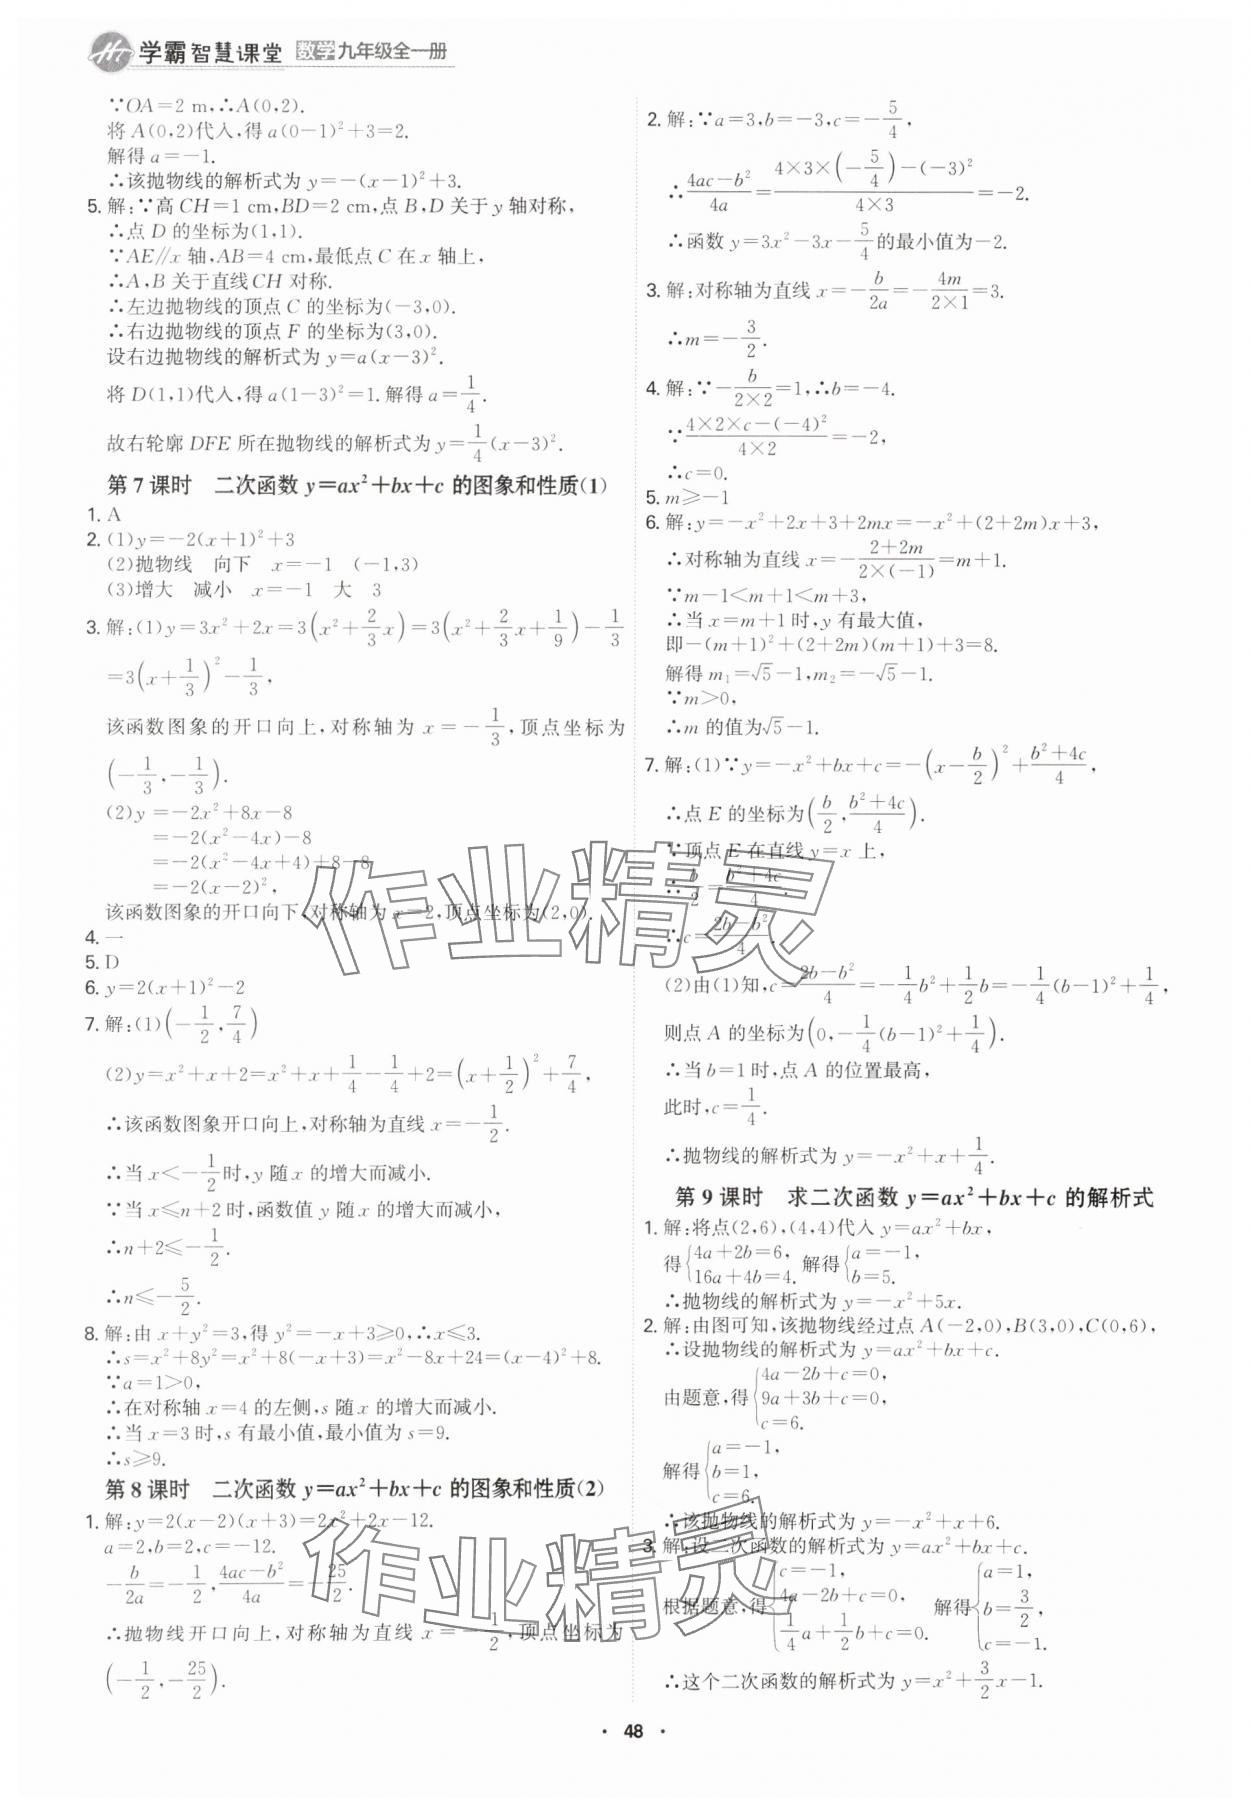 学霸智慧课堂 数学九年级全一册
∵OA=2 m,∴A(0,2).
将 A(0,2)代入,得 a(0−1)²+3=2.
解得 a=−1.
∴该抛物线的解析式为 y=−(x−1)²+3.
5. 解:∵高 CH=1 cm,BD=2 cm,点 B,D 关于 y 轴对称,
∴点 D 的坐标为(1,1).
∵AE//x 轴,AB=4 cm,最低点 C 在 x 轴上,
∴A,B 关于直线CH 对称.
∴左边抛物线的顶点 C 的坐标为(−3,0).
∴右边抛物线的顶点 F 的坐标为(3,0).
设右边抛物线的解析式为 y=a(x−3)².
将 D(1,1)代入,得 a(1−3)²=1.解得 a=1/4.
故右轮廓 DFE 所在抛物线的解析式为 y=1/4(x−3)².
第 7 课时 二次函数 y=ax²+bx+c 的图象和性质(1)
1. A
2. (1)y=−2(x+1)²+3
(2)抛物线 向下 x=−1 (−1,3)
(3)增大 减小 x=−1 大 3
3. 解:(1)y=3x²+2x=3(x²+2/3x)=3(x²+2/3x+1/9)−1/3
=3(x+1/3)²−1/3,
该函数图象的开口向上,对称轴为 x=−1/3,顶点坐标为
(−1/3,−1/3).
(2)y=−2x²+8x−8
=−2(x²−4x)−8
=−2(x²−4x+4)+8−8
=−2(x−2)²,
该函数图象的开口向下,对称轴为 x=2,顶点坐标为(2,0).
4. 一
5. D
6. y=2(x+1)²−2
7. 解:(1)(−1/2,7/4)
(2)y=x²+x+2=x²+x+1/4−1/4+2=(x+1/2)²+7/4,
∴该函数图象开口向上,对称轴为直线 x=−1/2.
∴当 x<−1/2时,y 随 x 的增大而减小.
∵当 x≤n+2 时,函数值 y 随 x 的增大而减小,
∴n+2≤−1/2.
∴n≤−5/2.
8. 解:由 x+y²=3,得 y²=−x+3≥0,∴x≤3.
∴s=x²+8y²=x²+8(−x+3)=x²−8x+24=(x−4)²+8.
∵a=1>0,
∴在对称轴 x=4 的左侧,s 随 x 的增大而减小.
∴当 x=3 时,s 有最小值,最小值为 9.
∴s≥9.
第 8 课时 二次函数 y=ax²+bx+c 的图象和性质(2)
1. 解:y=2(x−2)(x+3)=2x²+2x−12.
a=2,b=2,c=−12.
−b/2a=−1/2,(4ac−b²)/4a=−25/2.
∴抛物线开口向上,对称轴为直线 x=−1/2,顶点坐标为
(−1/2,−25/2).
2. 解:∵a=3,b=−3,c=−5/4,
∴(4ac−b²)/4a=(4×3×(−5/4)−(−3)²)/(4×3)=−2.
∴函数 y=3x²−3x−5/4的最小值为−2.
3. 解:对称轴为直线 x=−b/2a=−4m/(2×1)=3.
∴m=−3/2.
4. 解:∵−b/(2×2)=1,∴b=−4.
∵(4×2×c−(−4)²)/(4×2)=−2,
∴c=0.
5. m≥−1
6. 解:y=−x²+2x+3+2mx=−x²+(2+2m)x+3,
∴对称轴为直线 x=−(2+2m)/(2×(−1))=m+1.
∵m−1<m+1<m+3,
∴当 x=m+1 时,y 有最大值,
即−(m+1)²+(2+2m)(m+1)+3=8.
解得 m₁=√5−1,m₂=−√5−1.
∵m>0,
∴m 的值为√5−1.
7. 解:(1)∵y=−x²+bx+c=−(x−b/2)²+(b²+4c)/4,
∴点 E 的坐标为(b/2,(b²+4c)/4).
∵顶点 E 在直线 y=x 上,
∴b/2=(b²+4c)/4.
∴c=(2b−b²)/4.
(2)由(1)知,c=(2b−b²)/4=−1/4b²+1/2b=−1/4(b−1)²+1/4,
则点 A 的坐标为(0,−1/4(b−1)²+1/4).
∴当 b=1 时,点 A 的位置最高,
此时,c=1/4.
∴抛物线的解析式为 y=−x²+x+1/4.
第 9 课时 求二次函数 y=ax²+bx+c 的解析式
1. 解:将点(2,6),(4,4)代入 y=ax²+bx,
得{4a+2b=6, 16a+4b=4. 解得{a=−1, b=5.
∴抛物线的解析式为 y=−x²+5x.
2. 解:由图可知,该抛物线经过点 A(−2,0),B(3,0),C(0,6),
∴设抛物线的解析式为 y=ax²+bx+c.
由题意,得{4a−2b+c=0, 9a+3b+c=0, c=6.
解得{a=−1, b=1, c=6.
∴该抛物线的解析式为 y=−x²+x+6.
3. 解:设二次函数的解析式为 y=ax²+bx+c.
根据题意,得{c=−1, 4a−2b+c=0, 1/4a+1/2b+c=0. 解得{a=1, b=3/2, c=−1.
∴这个二次函数的解析式为 y=x²+3/2x−1.
· 48 ·
作业精灵
作业精灵